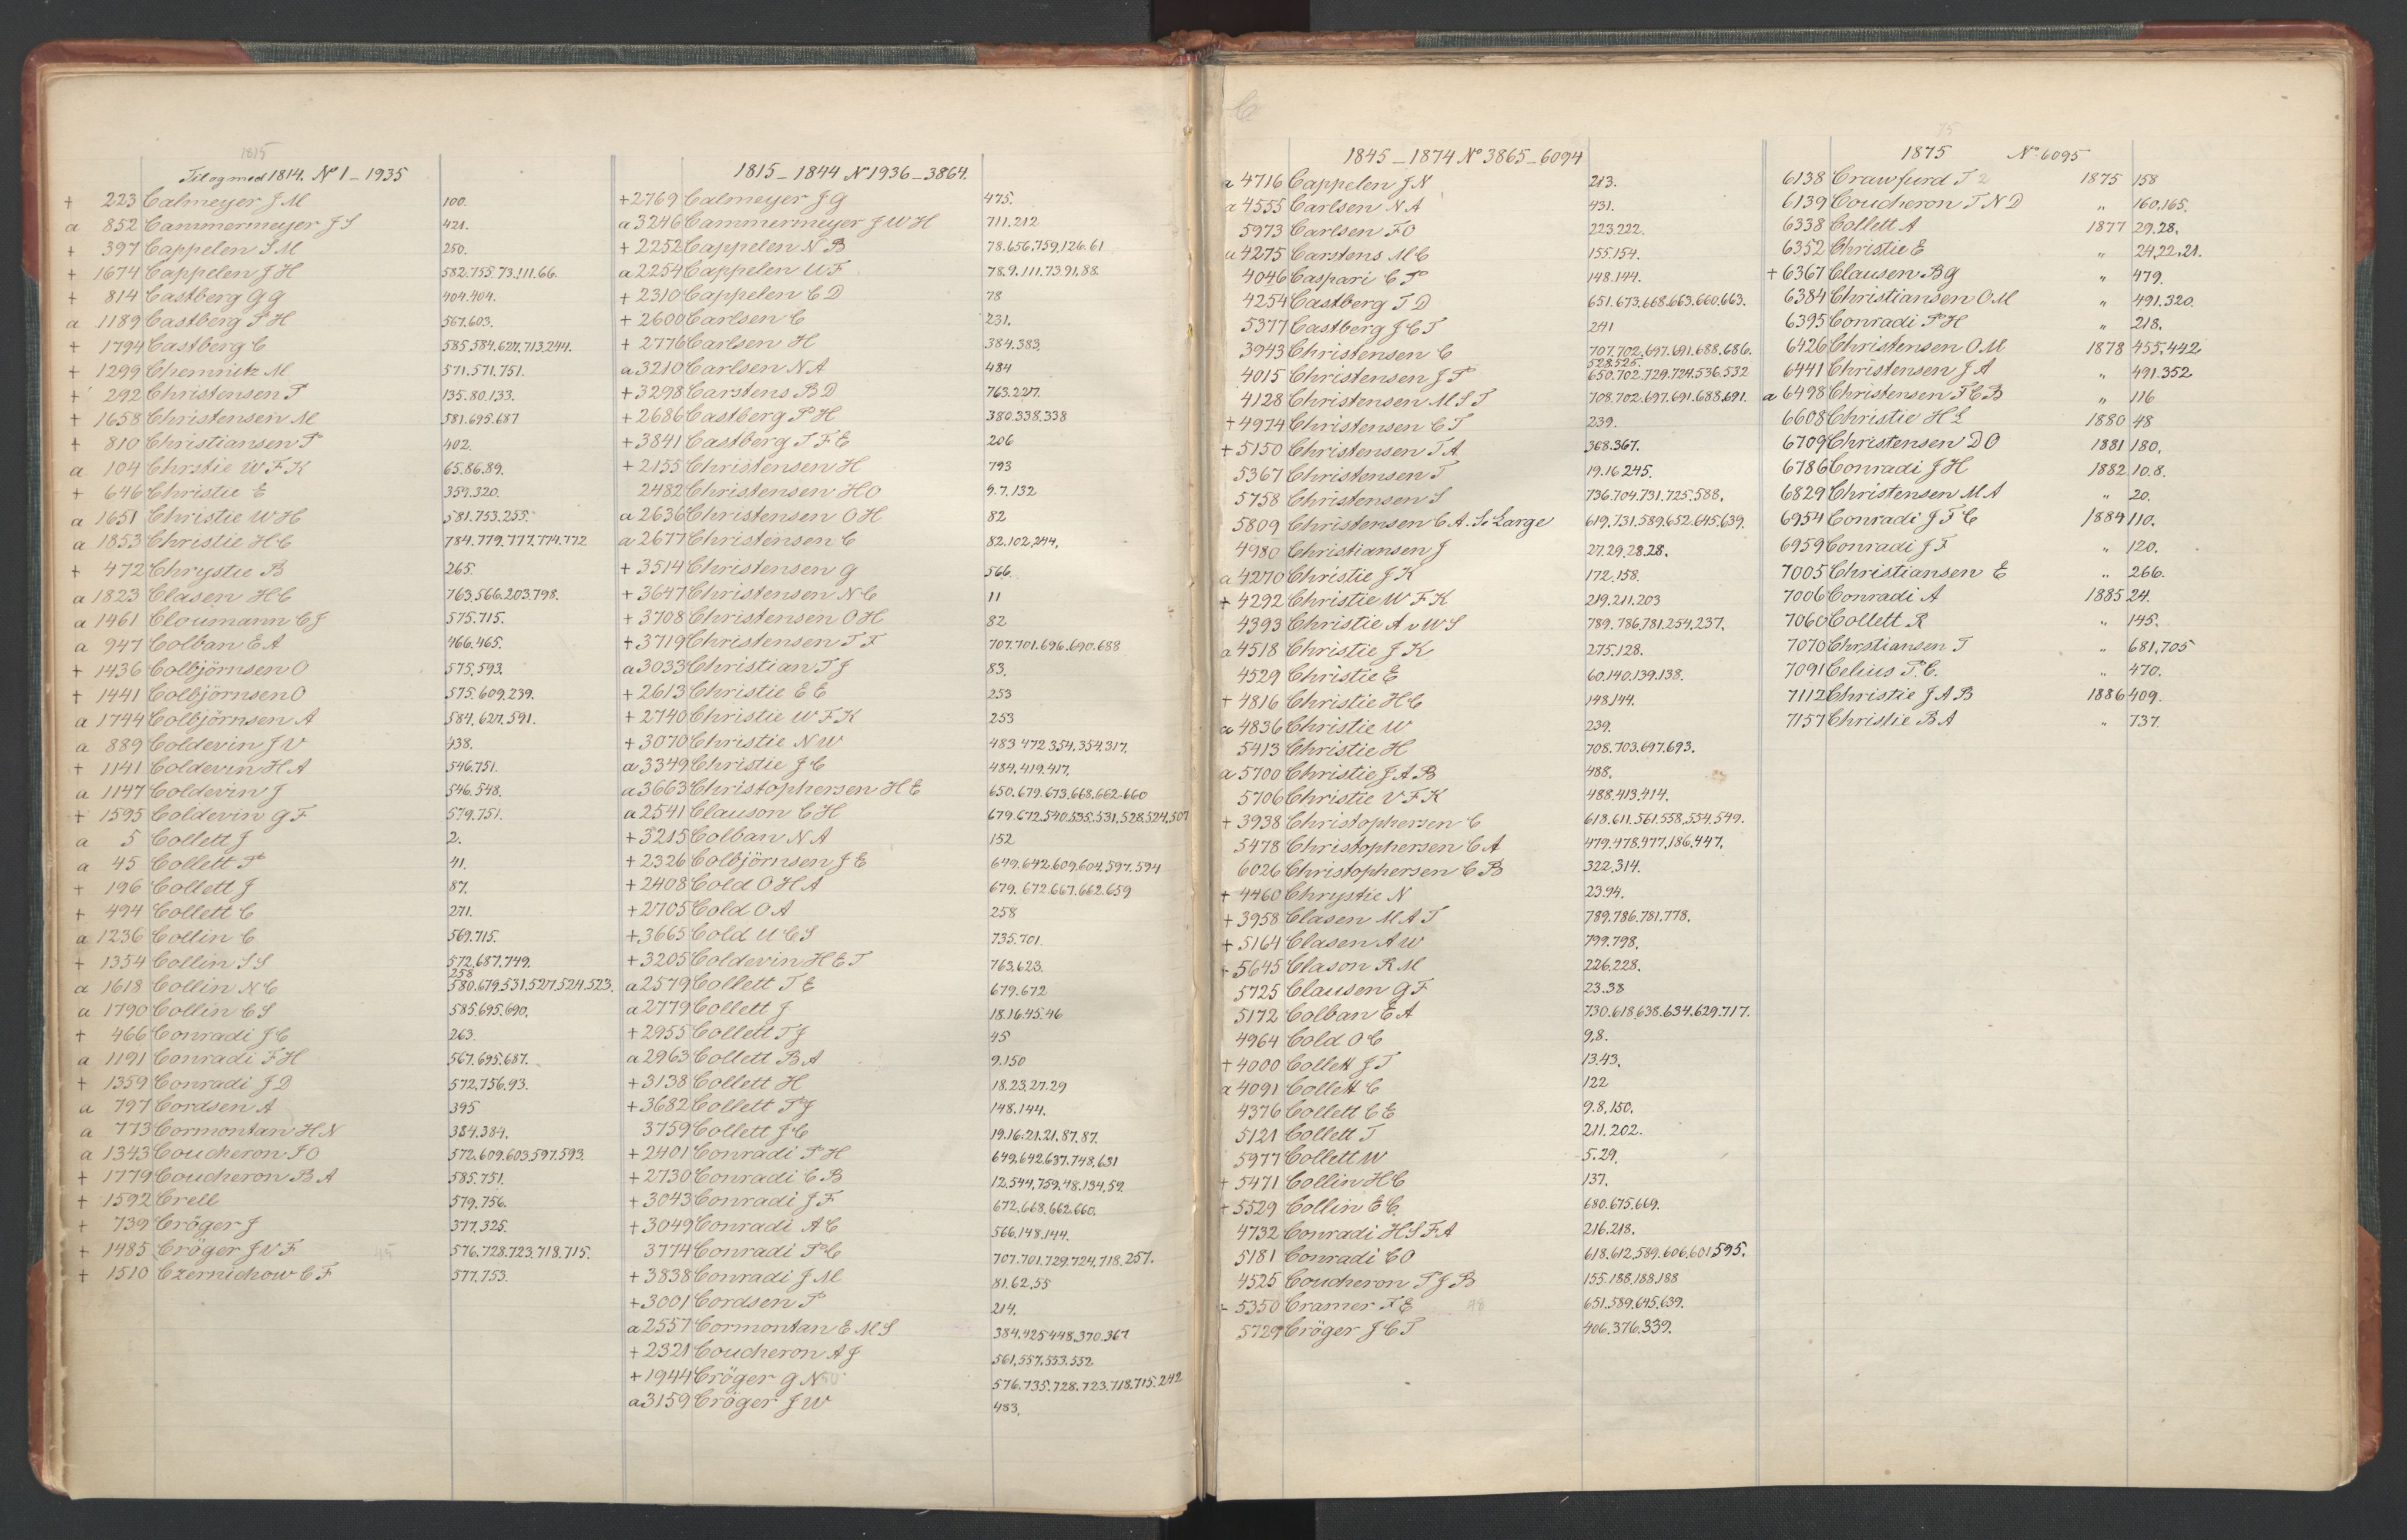 1815
Til og med 1814. No 1 – 1935
+ 223 Calmeyer J M 100.
a 852 Cammermeyer J S 421.
+ 397 Cappelen S M 250.
+ 1674 Cappelen J H 582.755.73.111.66.
+ 814 Castberg G G 404.404.
a 1189 Castberg P H 567.603.
+ 1794 Castberg C 585.584.627.713.244.
+ 1299 Chemnitz M 571.571.751.
+ 292 Christensen P 135.80.133.
+ 1658 Christensen M 581.695.687
+ 810 Christiansen P 402.
a 104 Chrstie W F K 65.86.89.
+ 646 Christie E 359.320.
a 1651 Christie W H 581.753.255.
a 1853 Christie H C 784.779.777.774.772
+ 472 Chrystie B 265.
a 1823 Clasen H C 763.566.203.798.
a 1461 Cloumann C J 575.715.
a 947 Colban E A 466.465.
+ 1436 Colbjörnsen O 575.593.
+ 1441 Colbjörnsen O 575.609.239.
a 1744 Colbjörnsen A 584.627.591.
a 889 Coldevin J V 438.
+ 1141 Coldevin H A 546.751.
a 1147 Coldevin J 546.548.
+ 1595 Coldevin G F 579.751.
a 5 Collett J 2.
a 45 Collett P 41.
+ 196 Collett J 87.
+ 494 Collett C 271.
a 1236 Collin C 569.715.
+ 1354 Collin S S 572.687.749.
258
a 1618 Collin N C 580.679.531.527.524.523.
a 1790 Collin C S 585.695.690.
+ 466 Conradi J C 263.
a 1191 Conradi F H 567.695.687.
+ 1359 Conradi J D 572.756.93.
a 797 Cordsen A 395
a 773 Cormontan H N 384.384.
a 1343 Coucheron S O 572.609.603.597.593.
+ 1779 Coucheron B A 585.751.
+ 1592 Crell 579.756.
+ 739 Cröger J 377.325.
+ 1485 Cröger J V F 45 576.728.723.718.715.
+ 1510 Czernichow C F 577.753.
1815 – 1844 No 1936 – 3864.
+ 2769 Calmeyer J G 475.
a 3246 Cammermeyer J W H 711.212
+ 2252 Cappelen N B 78.656.759.126.61
a 2254 Cappelen U F 78.9.111.73.91.88.
+ 2310 Cappelen C D 78
+ 2600 Carlsen C 231.
+ 2776 Carlsen H 384.383.
a 3210 Carlsen N A 484
+ 3298 Carstens B D 763.227.
+ 2686 Castberg P H 380.338.338
+ 3841 Castberg T F E 206
+ 2155 Christensen H 793
2482 Christensen H O 9.7.132
a 2636 Christensen O H 82
a 2677 Christensen C 82.102.244.
+ 3514 Christensen G 566.
+ 3647 Christensen N C 11
+ 3708 Christensen O H 82
+ 3719 Christensen T F 707.701.696.690.688
a 3033 Christian T J 83.
+ 2613 Christie E E 253
+ 2740 Christie W F K 253
+ 3070 Christie N W 483.472.354.354.317.
a 3349 Christie J C 484.419.417.
a 3663 Christophersen H E 650.679.673.668.662.660
a 2541 Clauson C H 679.672.540.535.531.528.524.507
+ 3215 Colban N A 152
+ 2326 Colbjörnsen J E 649.642.609.604.597.594
+ 2408 Cold O H A 679.672.667.662.659
+ 2705 Cold O A 258
+ 3665 Cold U C S 735.701
+ 3205 Coldevin H E T 763.623.
a 2579 Collett T E 679.672
a 2779 Collett J 18.16.45.46
+ 2955 Collett T J 45
a 2963 Collett B A 9.150
+ 3138 Collett H 18.23.27.29
+ 3682 Collett P J 148.144.
3759 Collett J C 19.16.21.21.87.87.
+ 2401 Conradi P H 649.642.637.748.631
+ 2730 Conradi C B 12.544.759.48.134.59.
+ 3043 Conradi J F 672.668.662.660.
+ 3049 Conradi A C 566.148.144.
3774 Conradi P C 707.701.729.724.718.257.
+ 3838 Conradi J M 81.62.55
+ 3001 Cordsen P 214.
a 2557 Cormontan E M S 384.425.448.370.367
+ 2321 Coucheron A J 561.557.553.552
+ 1944 Cröger G N 576.735.728.723.718.715.242
a 3159 Cröger J W 483.
C
1845 – 1874 No 3865 – 6094
a 4716 Cappelen J N 213.
a 4555 Carlsen N A 431.
5973 Carlsen F O 223.222.
a 4275 Carstens M C 155.154.
4046 Caspari C P 148.144.
4254 Castberg T D 651.673.668.663.660.663.
5377 Castberg J C T 241
3943 Christensen C 707.702.697.691.688.686.
528.525.
4015 Christensen J P 650.702.729.724.536.532
4128 Christensen M S T 708.702.697.691.688.691.
+ 4974 Christensen C T 239.
+ 5150 Christensen T A 368.367.
5367 Christensen T 19.16.245.
5758 Christensen S 736.704.731.725.588.
5809 Christensen C A S. Large 619.731.589.652.645.639.
4980 Christiansen J 27.29.28.28.
a 4270 Christie J K 172.158.
+ 4292 Christie W F K 219.211.203
4393 Christie A v W S 789.786.781.254.237.
a 4518 Christie J K 275.128.
4529 Christie E 60.140.139.138.
+ 4816 Christie H C 148.144.
a 4836 Christie W 239.
5413 Christie H 708.703.697.693.
a 5700 Christie J A B 488.
5706 Christie V F K 488.413.414.
+ 3938 Christophersen C 618.611.561.558.554.549.
5478 Christophersen C A 479.478.477.186.447.
6026 Christophersen C B 322.314.
+ 4460 Chrystie N 23.94.
+ 3958 Clasen M A T 789.786.781.778.
+ 5164 Clasen A W 799.798.
+ 5645 Clason R M 226.228.
5725 Clausen G F 23.38
5172 Colban E A 730.618.638.634.629.717.
4964 Cold O C 9.8.
+ 4000 Collett J T 13.43.
a 4091 Collett C 122
4376 Collett C E 9.8.150.
5121 Collett T 211.202.
5977 Collett W 5.29.
+ 5471 Collin H C 137.
+ 5529 Collin E C. 680.675.669.
4732 Conradi H S F A 216.218.
5181 Conradi C O 618.612.589.606.601.595.
4525 Coucheron P J B 155.188.188.188
+ 5350 Cramer F E 48 651.589.645.639.
5729 Cröger J C T 406.376.339.
75
1875 No 6095
6138 Crawfurd T 2 1875 158
6139 Coucheron T N D „ 160.165.
6338 Collett A 1877 29.28.
6352 Christie E „ 24.22.21.
+ 6367 Clausen B G „ 479.
6384 Christiansen O M „ 491.320.
6395 Conradi P H „ 218.
6426 Christensen O M 1878 455.442
6441 Christensen J A „ 491.352
a 6498 Christensen F E B „ 116
6608 Christie H L 1880 48
6709 Christensen D O 1881 180.
6786 Conradi J H 1882 10.8.
6829 Christensen M A „ 20.
6954 Conradi J F C 1884 110.
6959 Conradi J F „ 120.
7005 Christiansen E „ 266.
7006 Conradi A 1885 24.
7060 Collett R „ 145.
7070 Chrstiansen T „ 681.705
7091 Celius P. C. „ 470.
7112 Christie J A B 1886 409.
7157 Christie B A „ 737.